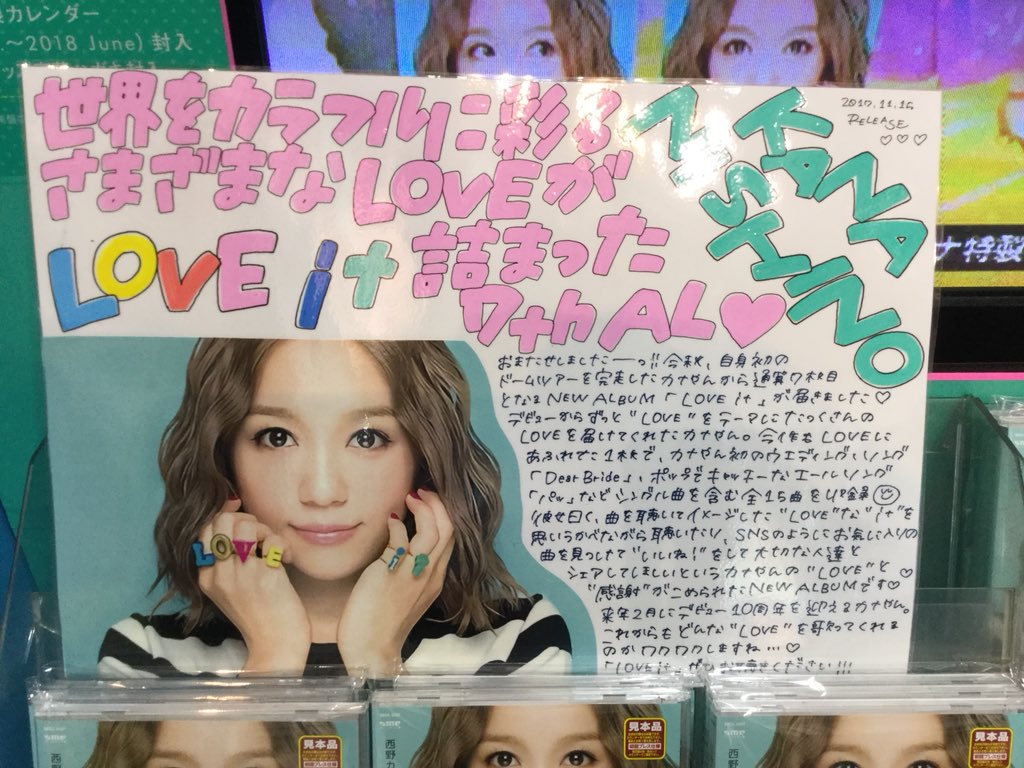 カレンダー
～2018 June) 封入
世界をカラフルに彩る
さまざまな LOVEが
LOVE it 詰まった
7th AL♡
KANA
NISHINO
2017.11.15
RELEASE
♡♡♡
ナ特製
おまたせしましたーっ!! 今秋、自身初の
ドームツアーを完走したカナやんから通算7枚目
となるNEW ALBUM「LOVE it」が届きました♡
デビューからずっと"LOVE"をテーマにたっくさんの
LOVEを届けてくれたカナやん。今作もLOVEに
あふれた1枚で、カナやん初のウエディング・ソング
「Dear Bride」、ポップでキャッチーなエールソング
「パッ」などシングル曲を含む全15曲を収録
彼女曰く、曲を聴いてイメージした"LOVE"な"it"を
思いうかべながら聴いたり、SNSのようにお気に入りの
曲を見つけて"いいね!"をして大切な人達と
シェアしてほしいというカナやんの"LOVE"と♡
"感謝"がこめられたNEW ALBUMです♡
来年2月にデビュー10周年を迎えるカナやん。
これからもどんな"LOVE"を歌ってくれる
のかワクワクしますね…♡
「LOVE it」ぜひお聴きください!!!
LOVE it
西野カ
見本品
初回プレス仕様
西野カ
見本品
初回プレス仕様
西野
見本品
初回プレス仕様